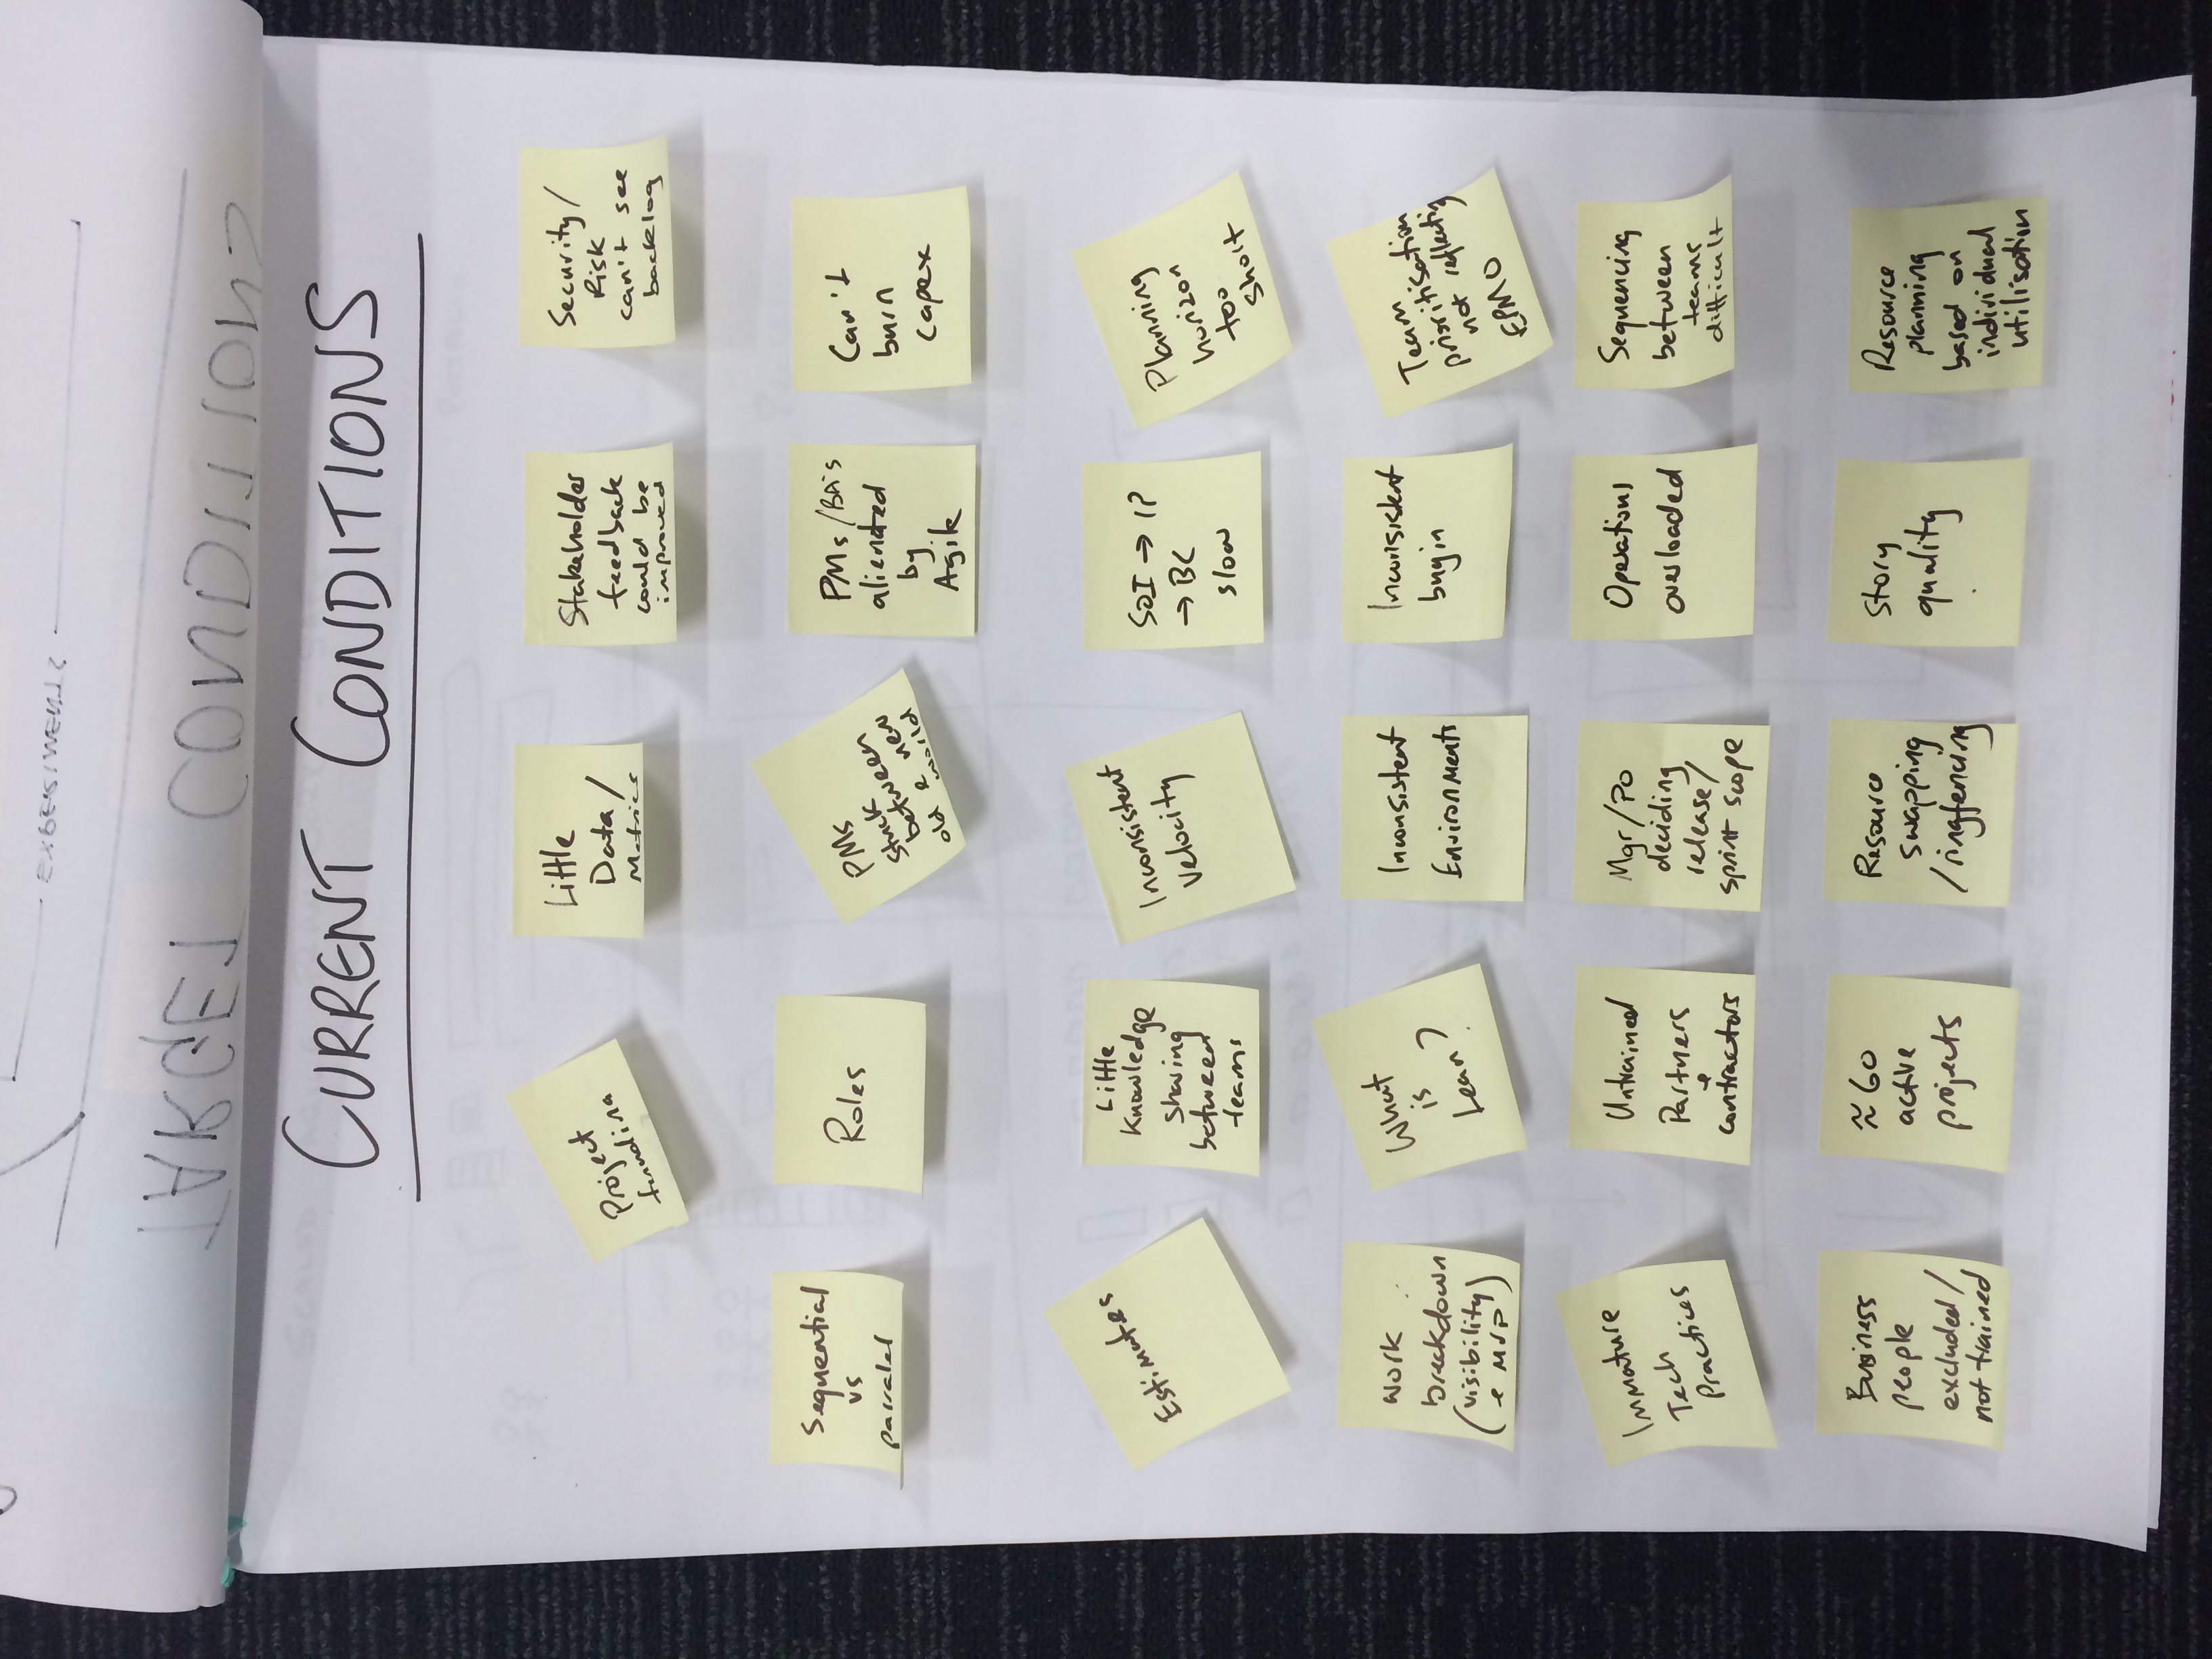 EXPERIMENTS
TARGET CONDITIONS
CURRENT CONDITIONS
Project
funding
Little
Data/
Metrics
Stakeholder
feedback
could be
improved
Security/
Risk
can't see
backlog
Sequential
vs
parralel
Roles
PMs
stuck
between
old & new
world
PMs/BA's
alienated
by
Agile
Can't
burn
capex
Estimates
Little
Knowledge
sharing
between
teams
Inconsistent
velocity
SOI → IP
→ BC
slow
Planning
horizon
too
short
Work
breakdown
(visibility
& MVP)
What
is
Lean?
Inconsistent
Environments
Inconsistent
buyin
Team
prioritisation
not reflecting
EPMO
Immature
Tech
Practices
Untrained
Partners
&
contractors
Mgr/PO
deciding
release/
sprint scope
Operations
overloaded
Sequencing
between
teams
difficult
Business
people
excluded/
not trained
≈60
active
projects
Resource
swapping
/ringfencing
Story
quality
Resource
planning
based on
individual
utilisation